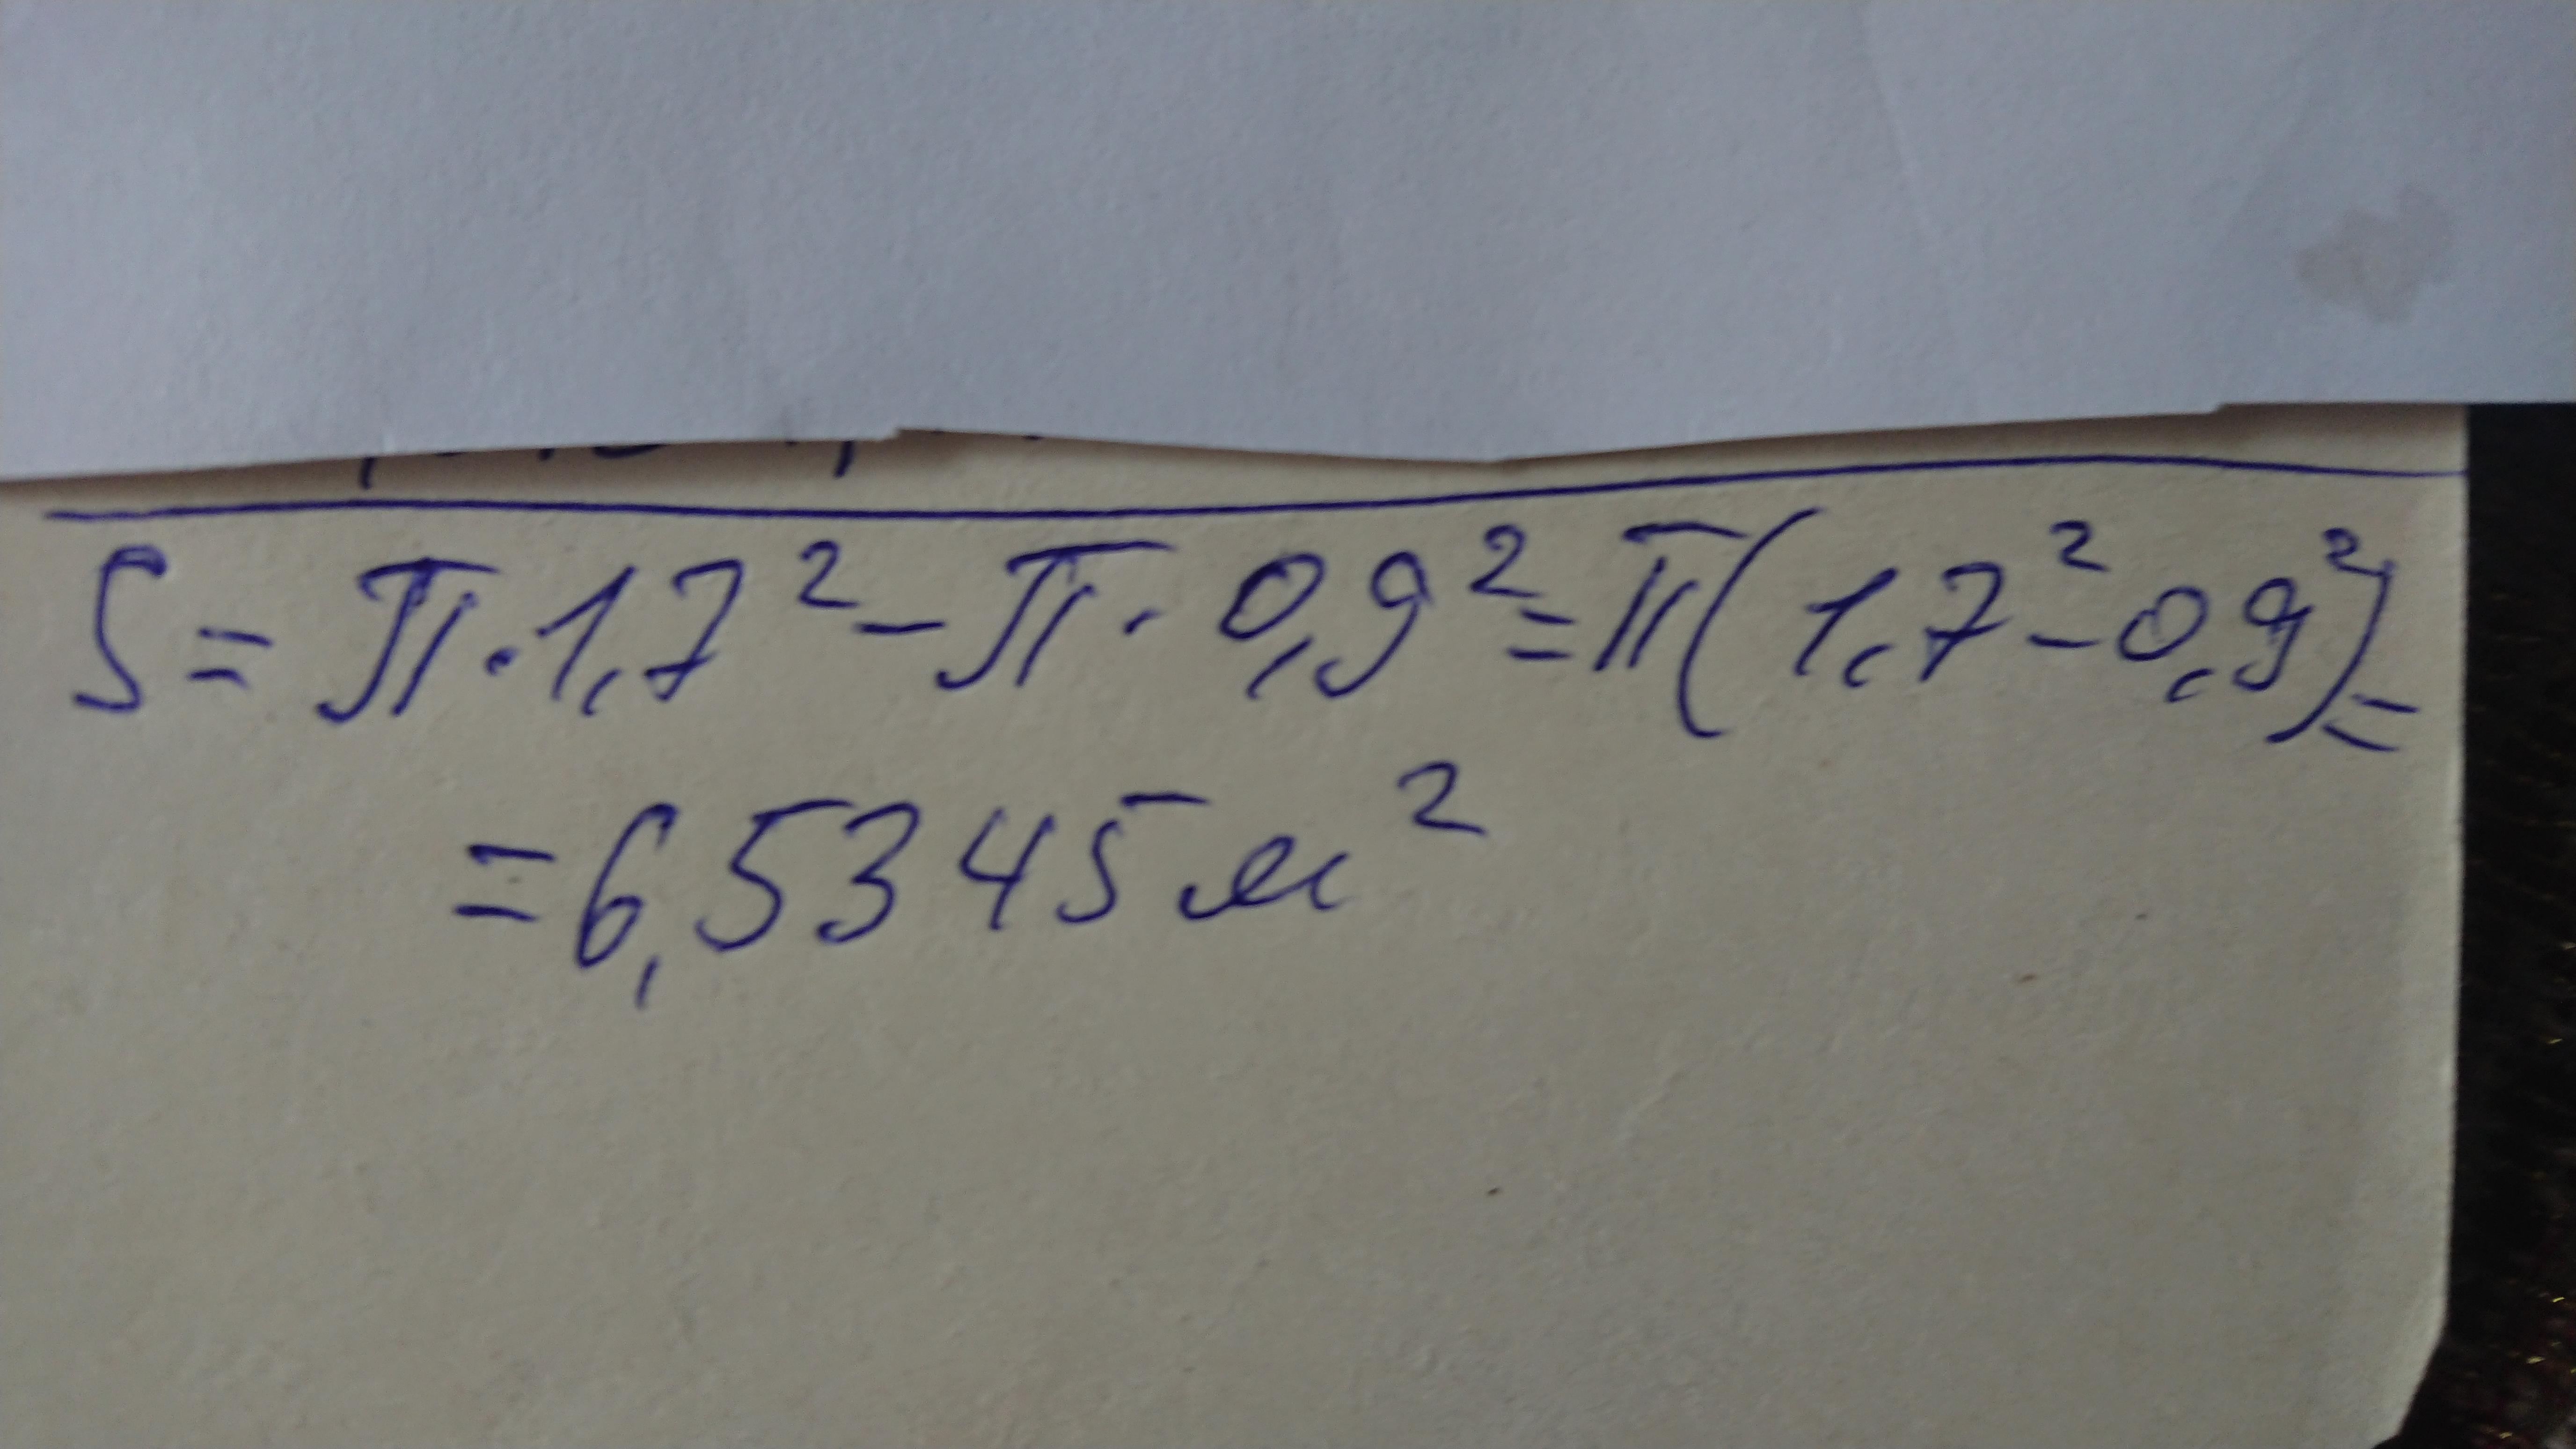 S = π · 1,7² - π · 0,9² = π(1,7² - 0,9²) =
= 6,5345 м²